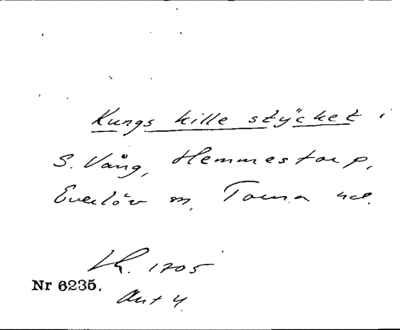 Kungs kille stycket i
S. Vång, Hemmestorp,
Everlöv sn, Torna hd.
Lh. 1705
Nr 6235.
Akt 4